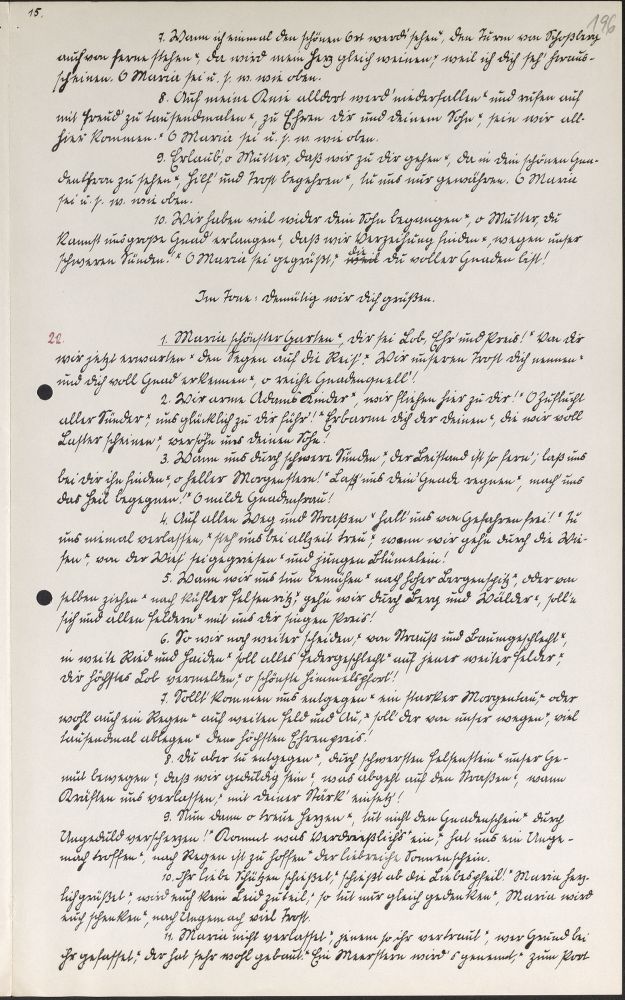 15.
196
7. Wann ich einmal den schönen Ort werd' sehen*, den Turm von Schoßberg
auch von ferne stehen*, da wird mein Herz gleich weinen,* weil ich dich seh' heraus-
scheinen. O Maria sei u. s. w. wie oben.
8. Auf meine Knie alldort werd' niederfallen* und rufen auf
mit Freud' zu tausendmalen*, zu Ehren dir und deinem Sohn*, sein wir all-
hier kommen.* O Maria sei u. s. w. wie oben.
9. Erlaub', o Mutter, daß wir zu dir gehen*, da in dein schönen Gna-
denthron zu sehen*, Hilf' und Trost begehren*, tu uns nur gewähren. O Maria
sei u. s. w. wie oben.
10. Wir haben viel wider dein Sohn begangen*, o Mutter, du
kannst uns große Gnad' erlangen*, daß wir Verzeihung finden*, wegen unser
schweren Sünden.* O Maria sei gegrüßt,* die du voller Gnaden bist!
Im Tone: Demütig wir dich grüßen.
22.
1. Maria schönster Garten*, dir sei Lob, Ehr' und Preis!* Von dir
wir jetzt erwarten* den Segen auf die Reis'.* Wir unseren Trost dich nennen*
und dich voll Gnad' erkennen*, o reiche Gnadenquell'!
2. Wir arme Adams Kinder*, wir fliehen hier zu dir!* O Zuflucht
aller Sünder*, uns glücklich zu dir führ'!* Erbarme dich der deinen*, die wir voll
Laster scheinen*, versöhn uns deinen Sohn!
3. Wann uns durch schwere Sünden*, der Beistand ist so fern*, laß uns
bei dir ihn finden*, o heller Morgenstern!* Lass' uns dein' Gnade regnen*, mach' uns
das Heil begegnen!* O milde Gnadenfrau!
4. Auf allen Weg und Straßen* halt' uns von Gefahren frei!* Tu
uns niemal verlassen,* steh uns bei allzeit treu*, wann wir gehn durch die Wie-
sen*, von der Wies' sei gepriesen* und jungen Blümelein!
5. Wann wir uns tun bemühen* nach hoher Bergenspitz*, oder von
selben ziehen* nach kühler Felsenritz*, gehn wir durch Berg und Wälder*, soll'n
sich und allen Feldern* mit uns dir singen Preis!
6. So wir noch weiter scheiden,* von Strauß und Baumgeschlecht*,
in weite Ried und Haiden* soll alles Federgeschlecht* auf jener weiter Felder,*
dir höchstes Lob vermelden,* o schönste Himmelspfort!
7. Sollt' kommen uns entgegen* ein starker Morgentau,* oder
wohl auch ein Regen* auf weiten Feld und Au,* soll der von unser wegen*, viel
tausendmal ablegen* dem höchsten Ehrenpreis!
8. Du aber tu entgegen*, durch schwersten Felsenstein* unser Ge-
müt bewegen*, daß wir geduldig sein*, was abgeht auf den Straßen*, wann
Kräften uns verlassen,* mit deiner Stärk' einsetz!
9. Nun dann o treue Herzen*, tut nicht den Gnadenschein* durch
Ungeduld verscherzen!* Kommt was Verdrießlichs ein*, hat uns ein Unge-
mach troffen*, nach Regen ist zu hoffen* der liebreiche Sonnenschein.
10. Ihr liebe Schützen schießet,* schießt ab die Liebespfeil!* Maria herz-
lich grüßet*, wird euch kein Leid zuteil,* so tut nur gleich gedenken*, Maria wird
euch schenken*, nach Ungemach viel Trost.
11. Maria nicht verlasset*, jenem so ihr vertraut*, wer Grund bei
ihr gefasset,* der hat sehr wohl gebaut.* Ein Meerstern wird's genennt,* zum Port